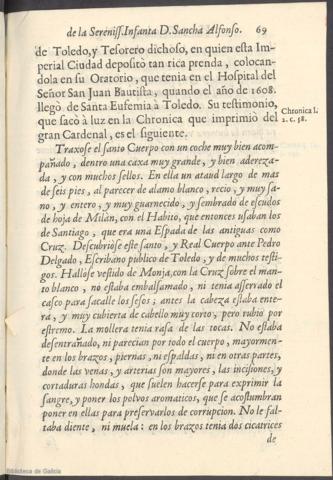 de la Sereniss. Infanta D. Sancha Alfonso. 69
de Toledo, y Tesorero dichoso, en quien esta Im-
perial Ciudad depositò tan rica prenda, colocan-
dola en su Oratorio, que tenia en el Hospital del
Señor San Juan Bautista, quando el año de 1608.
llegò de Santa Eufemia à Toledo. Su testimonio,
que sacò à luz en la Chronica que imprimiò del
gran Cardenal, es el siguiente.
Chronica l.
2. c. 58.
Traxose el santo Cuerpo con un coche muy bien acom-
pañado, dentro una caxa muy grande, y bien adereza-
da, y con muchos sellos. En ella un ataud largo de mas
de seis pies, al parecer de alamo blanco, recio, y muy sa-
no, y entero, y muy guarnecido, y sembrado de escudos
de hoja de Milàn, con el Habito, que entonces usaban los
de Santiago, que era una Espada de las antiguas como
Cruz. Descubriòse este santo, y Real Cuerpo ante Pedro
Delgado, Escribano publico de Toledo, y de muchos testi-
gos. Hallòse vestido de Monja, con la Cruz sobre el man-
to blanco, no estaba embalsamado, ni tenia asserrado el
casco para sacalle los sesos; antes la cabeza estaba ente-
ra, y muy cubierta de cabello muy corto, pero rubio por
estremo. La mollera tenia rasa de las tocas. No estaba
desentrañado, ni parecian por todo el cuerpo, mayormen-
te en los brazos, piernas, ni espaldas, ni en otras partes,
donde las venas, y arterias son mayores, las incisiones, y
cortaduras hondas, que suelen hacerse para exprimir la
sangre, y poner los polvos aromaticos, que se acostumbran
poner en ellas para preservarlos de corrupcion. No le fal-
taba diente, ni muela: en los brazos tenia dos cicatrices
de
Biblioteca de Galicia